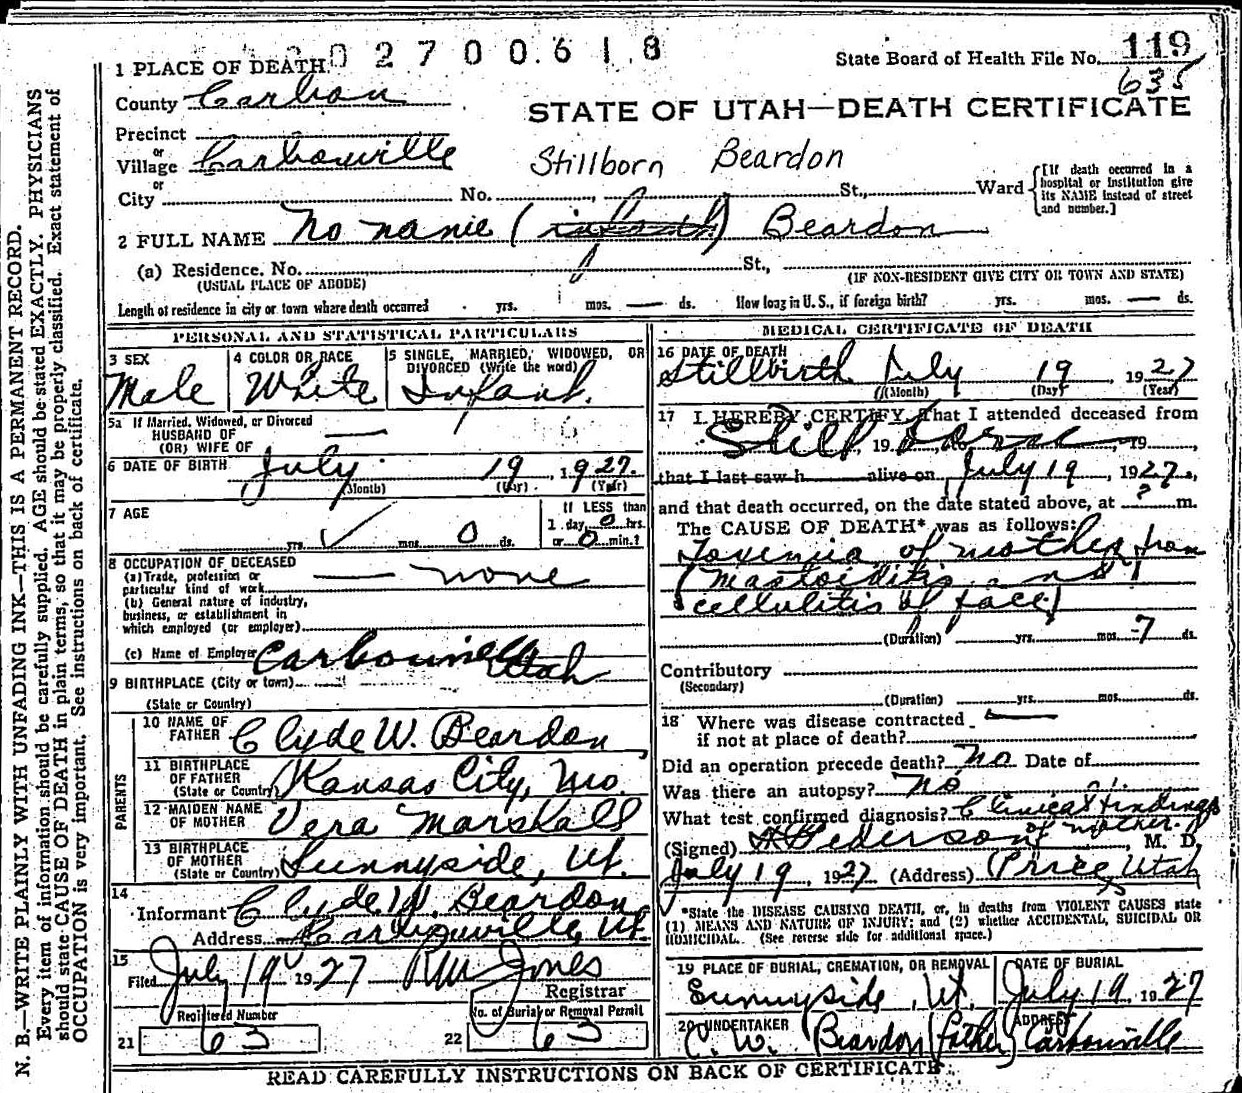 2 7 0 0 6 1 8
State Board of Health File No. 119
635
1 PLACE OF DEATH
County Carbon
STATE OF UTAH—DEATH CERTIFICATE
Precinct
or
Village Carbonville
Stillborn Beardon
or
City No. St., Ward
[If death occurred in a hospital or institution give its NAME instead of street and number.]
2 FULL NAME No name (infant) Beardon
(a) Residence. No. St.,
(USUAL PLACE OF ABODE) (IF NON-RESIDENT GIVE CITY OR TOWN AND STATE)
Length of residence in city or town where death occurred yrs. mos. — ds. How long in U.S., if foreign birth? yrs. mos. — ds.
PERSONAL AND STATISTICAL PARTICULARS
3 SEX
Male
4 COLOR OR RACE
White
5 SINGLE, MARRIED, WIDOWED, OR DIVORCED (Write the word)
Infant.
5a If Married, Widowed, or Divorced
HUSBAND OF
(OR) WIFE OF —
6 DATE OF BIRTH July 19 1927.
(Month) (Day) (Year)
7 AGE
yrs. ✓ mos. 0 ds.
If LESS than
1 day 0 hrs.
or 0 min.?
8 OCCUPATION OF DECEASED
(a) Trade, profession or
particular kind of work — none
(b) General nature of industry,
business, or establishment in
which employed (or employer)
(c) Name of Employer
Carbonville
Utah
9 BIRTHPLACE (City or town)
(State or Country)
PARENTS
10 NAME OF FATHER Clyde W. Beardon
11 BIRTHPLACE OF FATHER (State or Country) Kansas City, Mo.
12 MAIDEN NAME OF MOTHER Vera Marshall
13 BIRTHPLACE OF MOTHER (State or Country) Sunnyside, Ut.
14
Informant Clyde W. Beardon
Address Carbonville, Ut.
15
Filed July 19 1927 RW Jones
Registrar
Registered Number
21 63
No. of Burial or Removal Permit
22 63
MEDICAL CERTIFICATE OF DEATH
16 DATE OF DEATH
Stillbirth July 19, 1927
(Month) (Day) (Year)
17 I HEREBY CERTIFY, That I attended deceased from
Still, 19 borne 19
that I last saw h alive on July 19, 1927,
and that death occurred, on the date stated above, at ? m.
The CAUSE OF DEATH* was as follows:
Toxemia of mother from
(mastoiditis and
cellulitis of face)
(Duration) yrs. mos. 7 ds.
Contributory
(Secondary)
(Duration) yrs. mos. ds.
18 Where was disease contracted —
if not at place of death?
Did an operation precede death? No Date of
Was there an autopsy? No
What test confirmed diagnosis? Clinical findings
of mother.
(Signed) Pederson, M. D.
July 19, 1927 (Address) Price, Utah
*State the DISEASE CAUSING DEATH, or, in deaths from VIOLENT CAUSES state
(1) MEANS AND NATURE OF INJURY; and (2) whether ACCIDENTAL, SUICIDAL OR
HOMICIDAL. (See reverse side for additional space.)
19 PLACE OF BURIAL, CREMATION, OR REMOVAL
Sunnyside, Ut.
DATE OF BURIAL
July 19, 1927
20 UNDERTAKER
C. W. Beardon (father)
ADDRESS
Carbonville
READ CAREFULLY INSTRUCTIONS ON BACK OF CERTIFICATE.
N. B.—WRITE PLAINLY WITH UNFADING INK—THIS IS A PERMANENT RECORD.
Every item of information should be carefully supplied. AGE should be stated EXACTLY. PHYSICIANS
should state CAUSE OF DEATH in plain terms, so that it may be properly classified. Exact statement of
OCCUPATION is very important. See instructions on back of certificate.